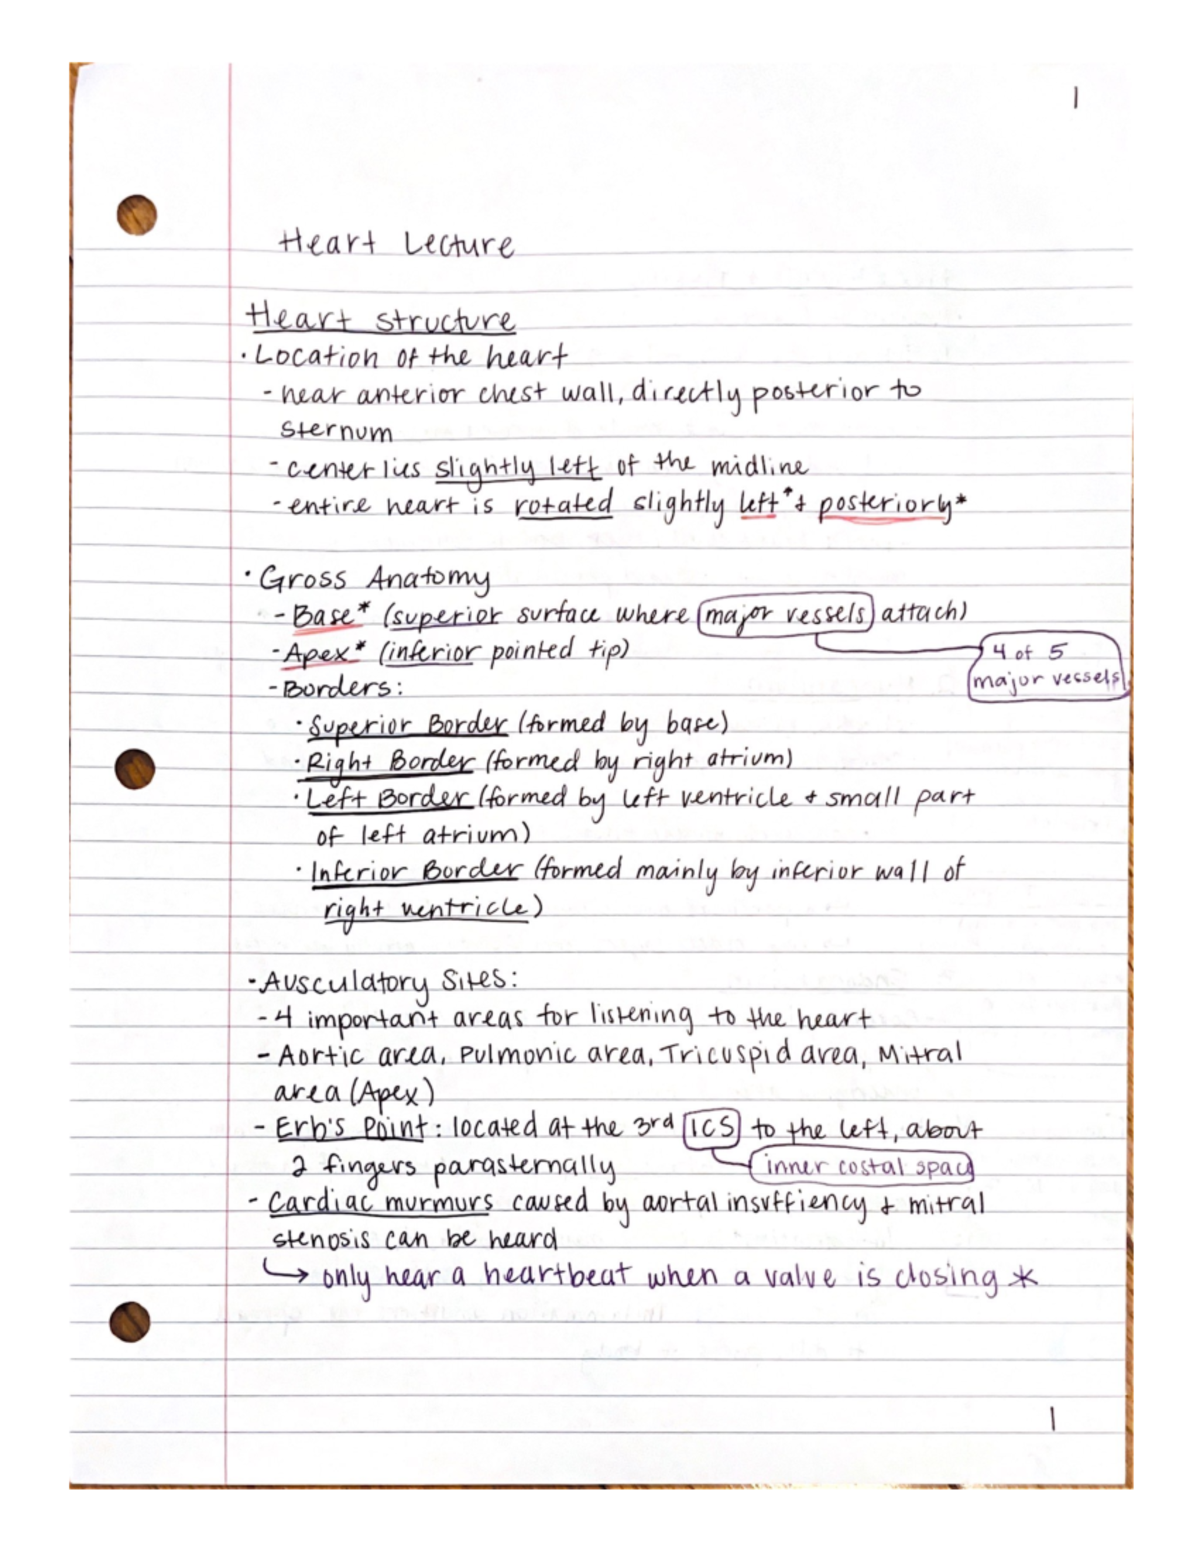 1
Heart Lecture
Heart structure
· Location of the heart
- near anterior chest wall, directly posterior to
sternum
- center lies slightly left of the midline
- entire heart is rotated slightly left* & posteriorly*
· Gross Anatomy
- Base* (superior surface where major vessels attach)
- Apex* (inferior pointed tip)
4 of 5
major vessels
- Borders:
· Superior Border (formed by base)
· Right Border (formed by right atrium)
· Left Border (formed by left ventricle & small part
of left atrium)
· Inferior Border (formed mainly by inferior wall of
right ventricle)
· Ausculatory Sites:
- 4 important areas for listening to the heart
- Aortic area, Pulmonic area, Tricuspid area, Mitral
area (Apex)
- Erb's Point: located at the 3rd ICS to the left, about
2 fingers parasternally
inner costal space
- Cardiac murmurs caused by aortal insuffiency & mitral
stenosis can be heard
↳ only hear a heartbeat when a valve is closing *
1